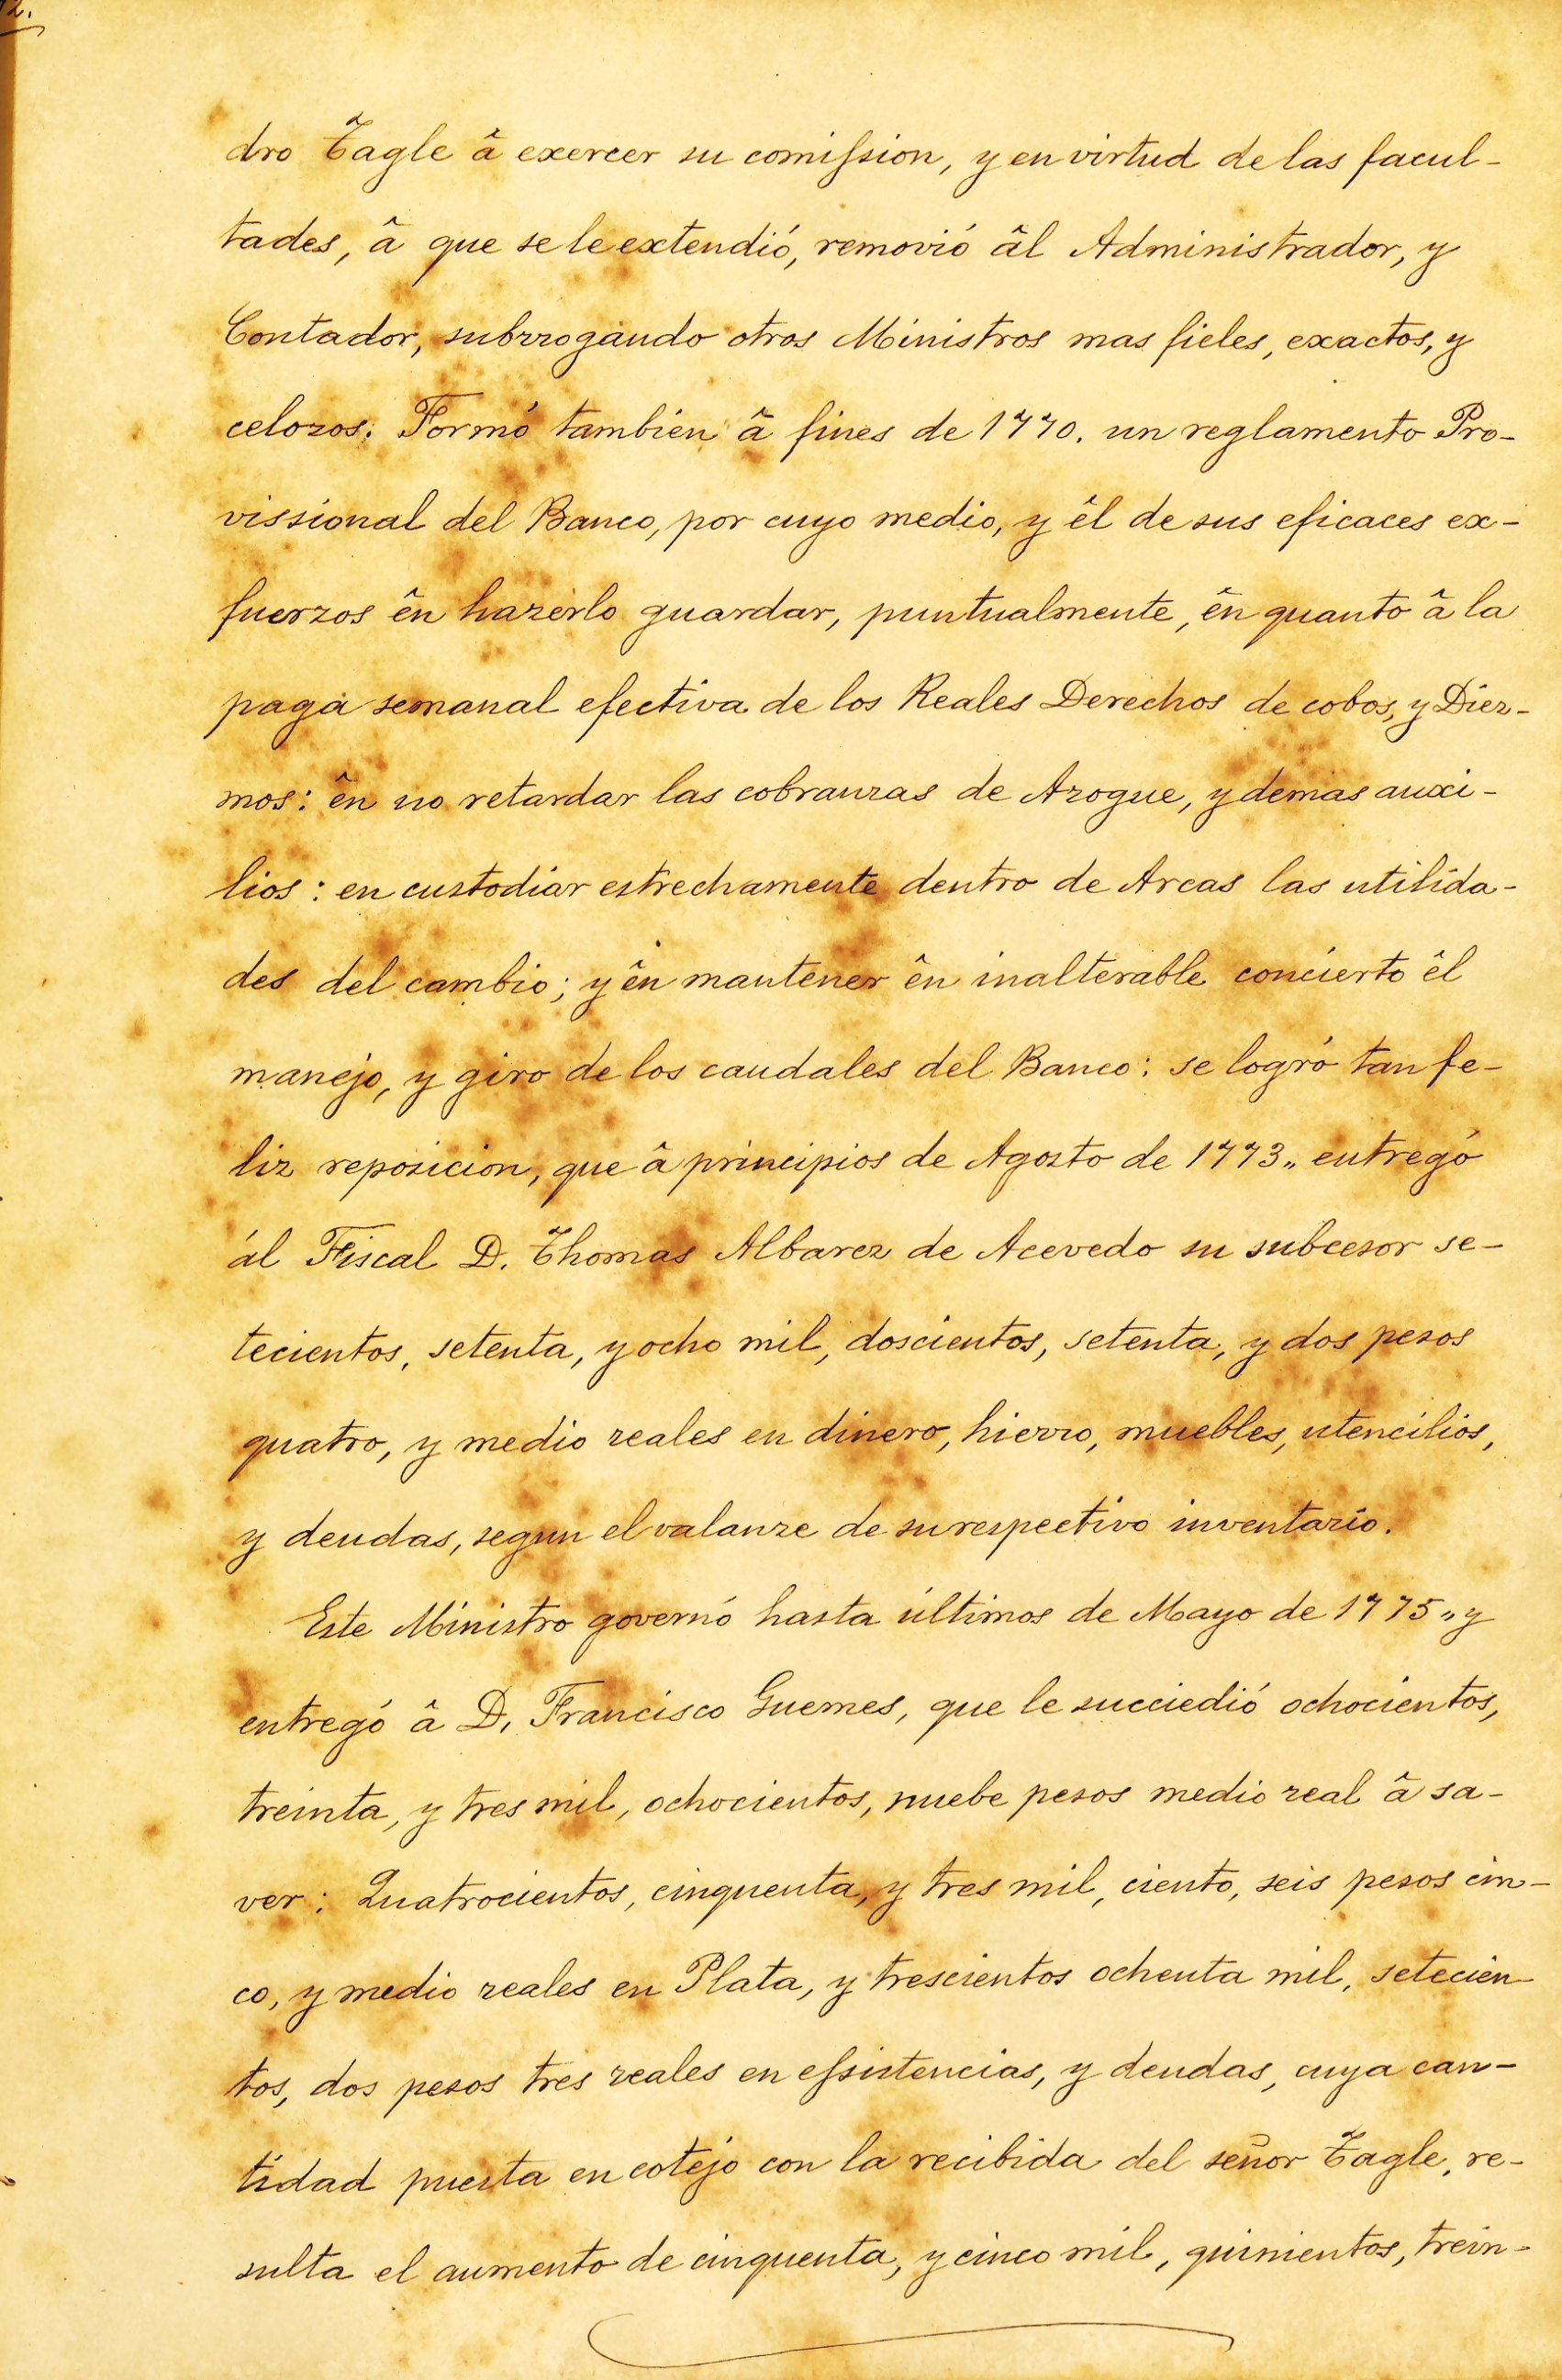 2.
dro Tagle â exercer su comission, y en virtud de las facul-
tades, â que se le extendió, removió âl Administrador, y
Contador, subrrogando otros Ministros mas fieles, exactos, y
celozos. Formó tambien â fines de 1770. un reglamento Pro-
vissional del Banco, por cuyo medio, y êl de sus eficaces ex-
fuerzos ên hazerlo guardar, puntualmente, ên quanto â la
paga semanal efectiva de los Reales Derechos de cobos, y Diez-
mos: ên no retardar las cobranzas de Azogue, y demas auxi-
lios: en custodiar estrechamente dentro de Arcas las utilida-
des del cambio; y ên mantener ên inalterable concierto êl
manejo, y giro de los caudales del Banco: se logró tan fe-
liz reposicion, que â principios de Agosto de 1773,, entregó
ál Fiscal D. Thomas Albarez de Acevedo su subcesor se-
tecientos, setenta, y ocho mil, doscientos, setenta, y dos pesos
quatro, y medio reales en dinero, hierro, muebles, utencilios,
y deudas, segun el valanze de su respectivo inventario.
Este Ministro governó hasta últimos de Mayo de 1775,, y
entregó â D. Francisco Guemes, que le succiedió ochocientos,
treinta, y tres mil, ochocientos, nuebe pesos medio real â sa-
ver: Quatrocientos, cinquenta, y tres mil, ciento, seis pesos cin-
co, y medio reales en Plata, y trescientos ochenta mil, setecien-
tos, dos pesos tres reales en essistencias, y deudas, cuya can-
tidad puesta en cotejo con la recibida del señor Tagle, re-
sulta el aumento de cinquenta, y cinco mil, quinientos, trein-